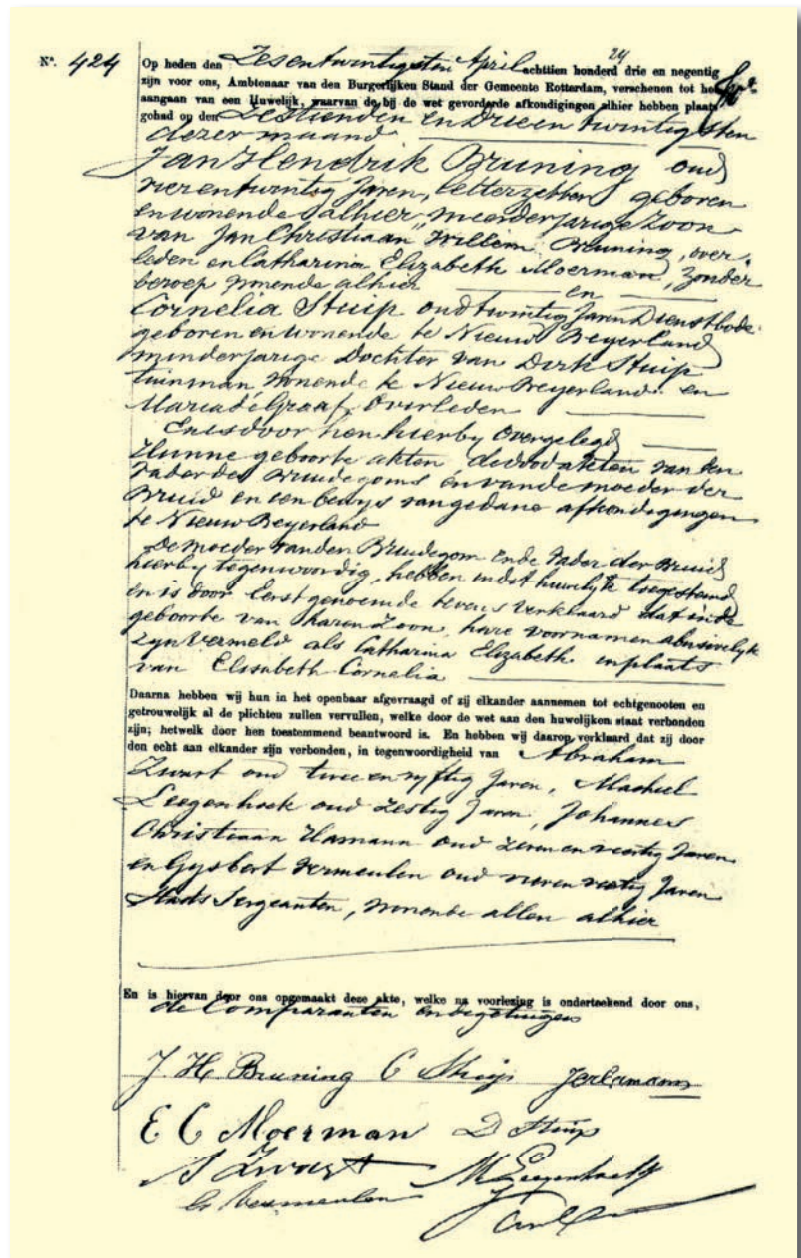 Nº. 424
24
Op heden den Zesentwintigsten April achttien honderd drie en negentig
zijn voor ons, Ambtenaar van den Burgerlijken Stand der Gemeente Rotterdam, verschenen tot het
aangaan van een Huwelijk, waarvan de bij de wet gevorderde afkondigingen alhier hebben plaats
gehad op den Zestienden en Drieentwintigsten
dezer maand
Jan Hendrik Bruning oud
vierentwintig Jaren, letterzetter, geboren
en wonende alhier meerderjarige Zoon
van Jan Christiaan Willem Bruning, over-
leden en Catharina Elizabeth Moerman, Zonder
beroep wonende alhier en
Cornelia Stuip oud twintig Jaren Dienstbode
geboren en wonende te Nieuw Beyerland
minderjarige Dochter van Dirk Stuip
tuinman wonende te Nieuw Beyerland en
Maria de Graaf, Overleden
En is door hen hierby Overgelegd
Hunne geboorte akten, de dood akten van den
Vader des Bruidegoms en van de moeder der
Bruid en een bewys van gedane afkondigingen
te Nieuw Beyerland
De moeder van den Bruidegom en de Vader der Bruid
hierby tegenwoordig, hebben in dit huwelyk toegestemd
en is door Eerstgenoemde tevens Verklaard dat in de
geboorte van haren Zoon, hare voornamen abusivelyk
zyn Vermeld als Catharina Elizabeth in plaats
van Elisabeth Cornelia
Daarna hebben wij hun in het openbaar afgevraagd of zij elkander aannemen tot echtgenooten en
getrouwelijk al de plichten zullen vervullen, welke door de wet aan den huwelijken staat verbonden
zijn; hetwelk door hen toestemmend beantwoord is. En hebben wij daarop verklaard dat zij door
den echt aan elkander zijn verbonden, in tegenwoordigheid van Abraham
Zwart oud twee en vyftig Jaren, Machiel
Leegenhoek oud Zestig Jaren, Johannes
Christiaan Hamann oud Zeven en veertig Jaren
en Gysbert Vermeulen oud vier en veertig Jaren
Stads Sergeanten, wonende allen alhier
En is hiervan door ons opgemaakt deze akte, welke na voorlezing is onderteekend door ons,
de Comparanten en de getuigen
J. H. Bruning C Stuip
E C Moerman D Stuip
A Zwart M Leegenhoek
G Vermeulen